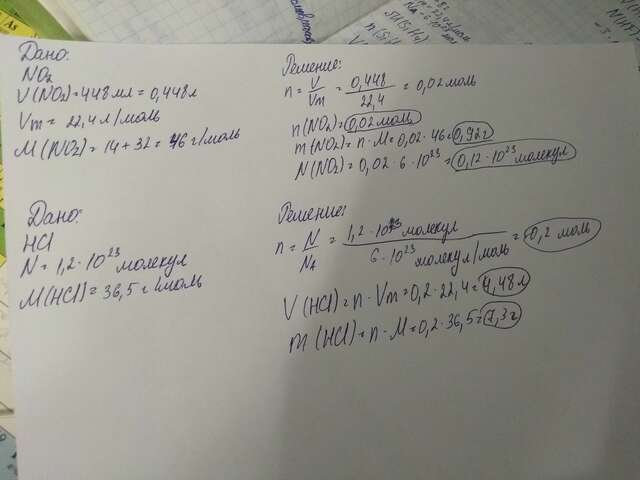 Дано:
NO2
V(NO2)=448 мл = 0,448 л
Vm = 22,4 л/моль
M(NO2)= 14 + 32 = 46 г/моль
Решение:
n = V/Vm = 0,448/22,4 = 0,02 моль
n(NO2)=0,02 моль
m(NO2)= n · M = 0,02 · 46 = 0,92 г
N(NO2)= 0,02 · 6 · 10^23 = 0,12 · 10^23 молекул
Дано:
HCl
N = 1,2 · 10^23 молекул
M(HCl)= 36,5 г/моль
Решение:
n = N/NA = 1,2 · 10^23 молекул / 6 · 10^23 молекул/моль = 0,2 моль
V(HCl)= n · Vm = 0,2 · 22,4 = 4,48 л
m(HCl)= n · M = 0,2 · 36,5 = 7,3 г